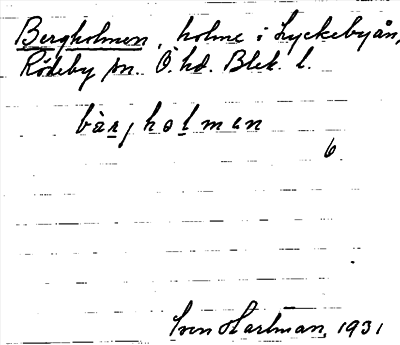 Bergholmen, holme i Lyckebyån,
Rödeby sn. Ö. hd. Blek. l.
bàrjholman
6.
Sven Hartman, 1931